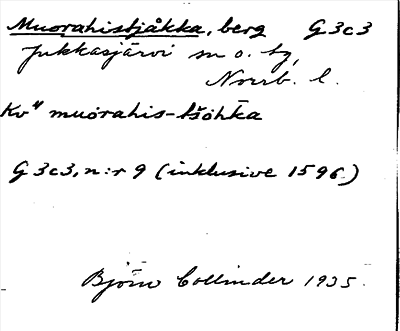 Muorahistjåkka, berg G3c3
Jukkasjärvi sn o. tg,
Norrb. l.
Kv" muorahis-tšohka
G3c3, n:r 9 (inklusive 1596)
Björn Collinder 1935.